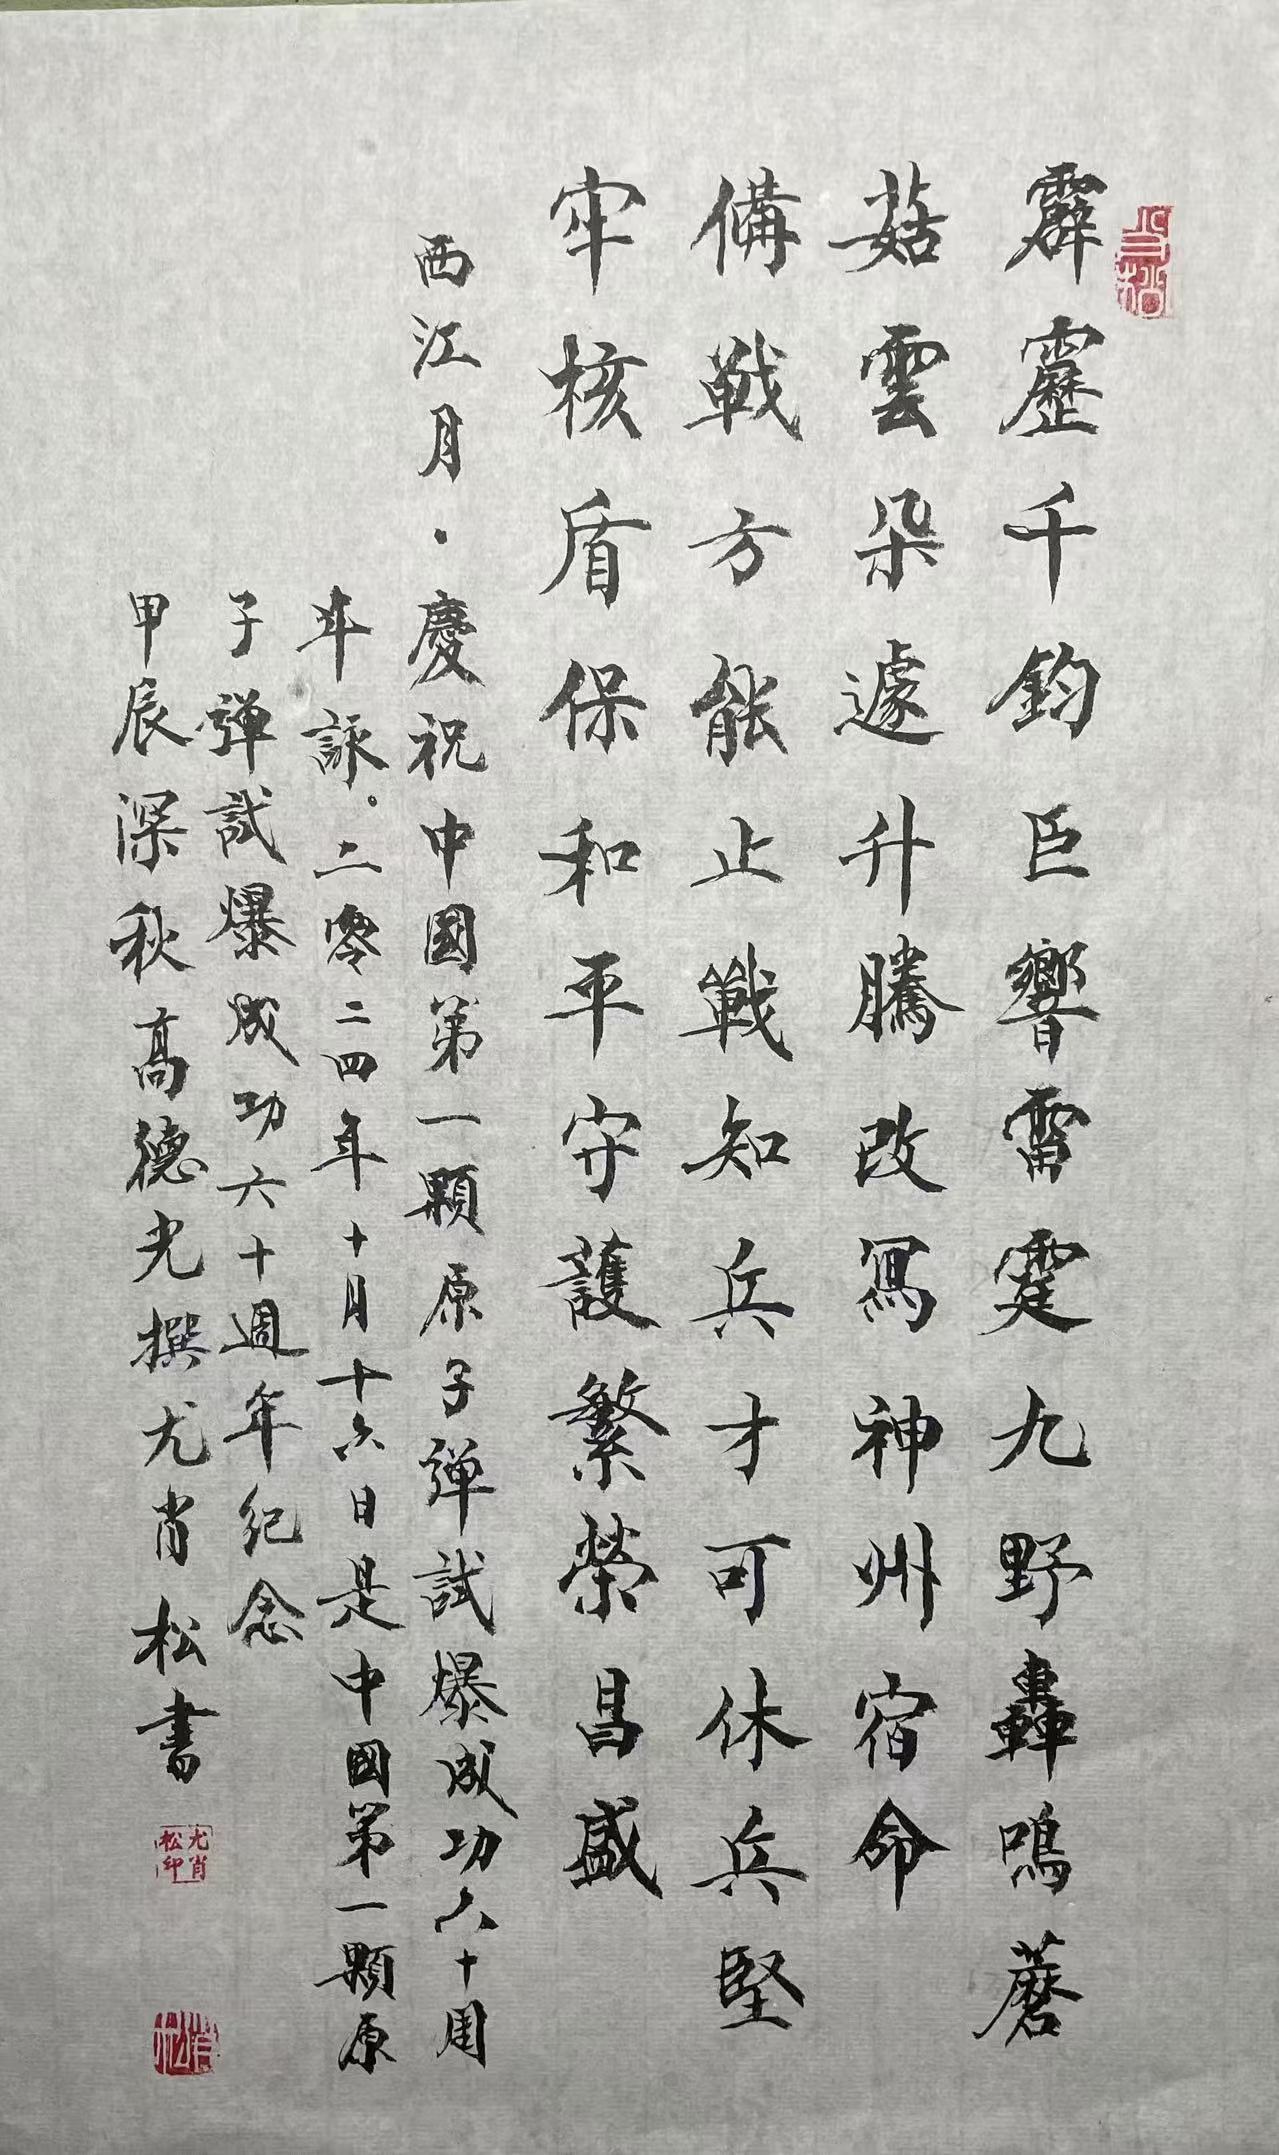 霹靂千鈞巨響雷霆九野轟鳴蘑
菇雲朵遽升騰改寫神州宿命
備戰方能止戰知兵才可休兵堅
牢核盾保和平守護繁榮昌盛
西江月·慶祝中國第一顆原子彈試爆成功六十周
年詠。二零二四年十月十六日是中國第一顆原
子彈試爆成功六十週年纪念
甲辰深秋高德光撰尤肖松書
尤肖松印